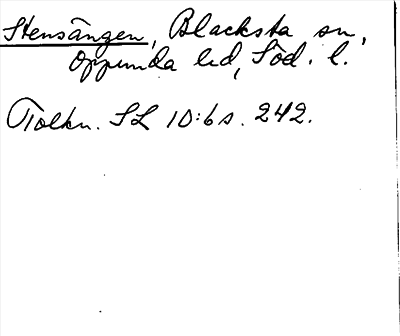 Stensängen, Blacksta sn,
Oppunda hd, Söd. l.
Tolkn. SL 10:6 s. 242.